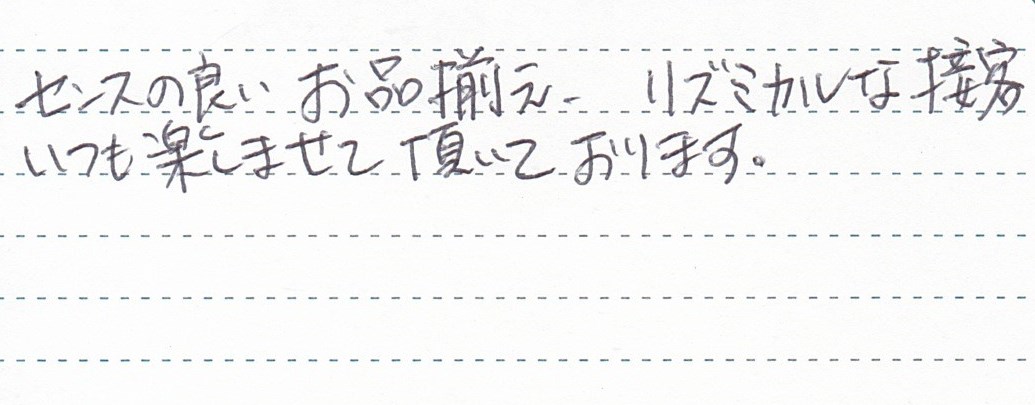 センスの良い お品揃え、 リズミカルな接客
いつも楽しませて頂いております。